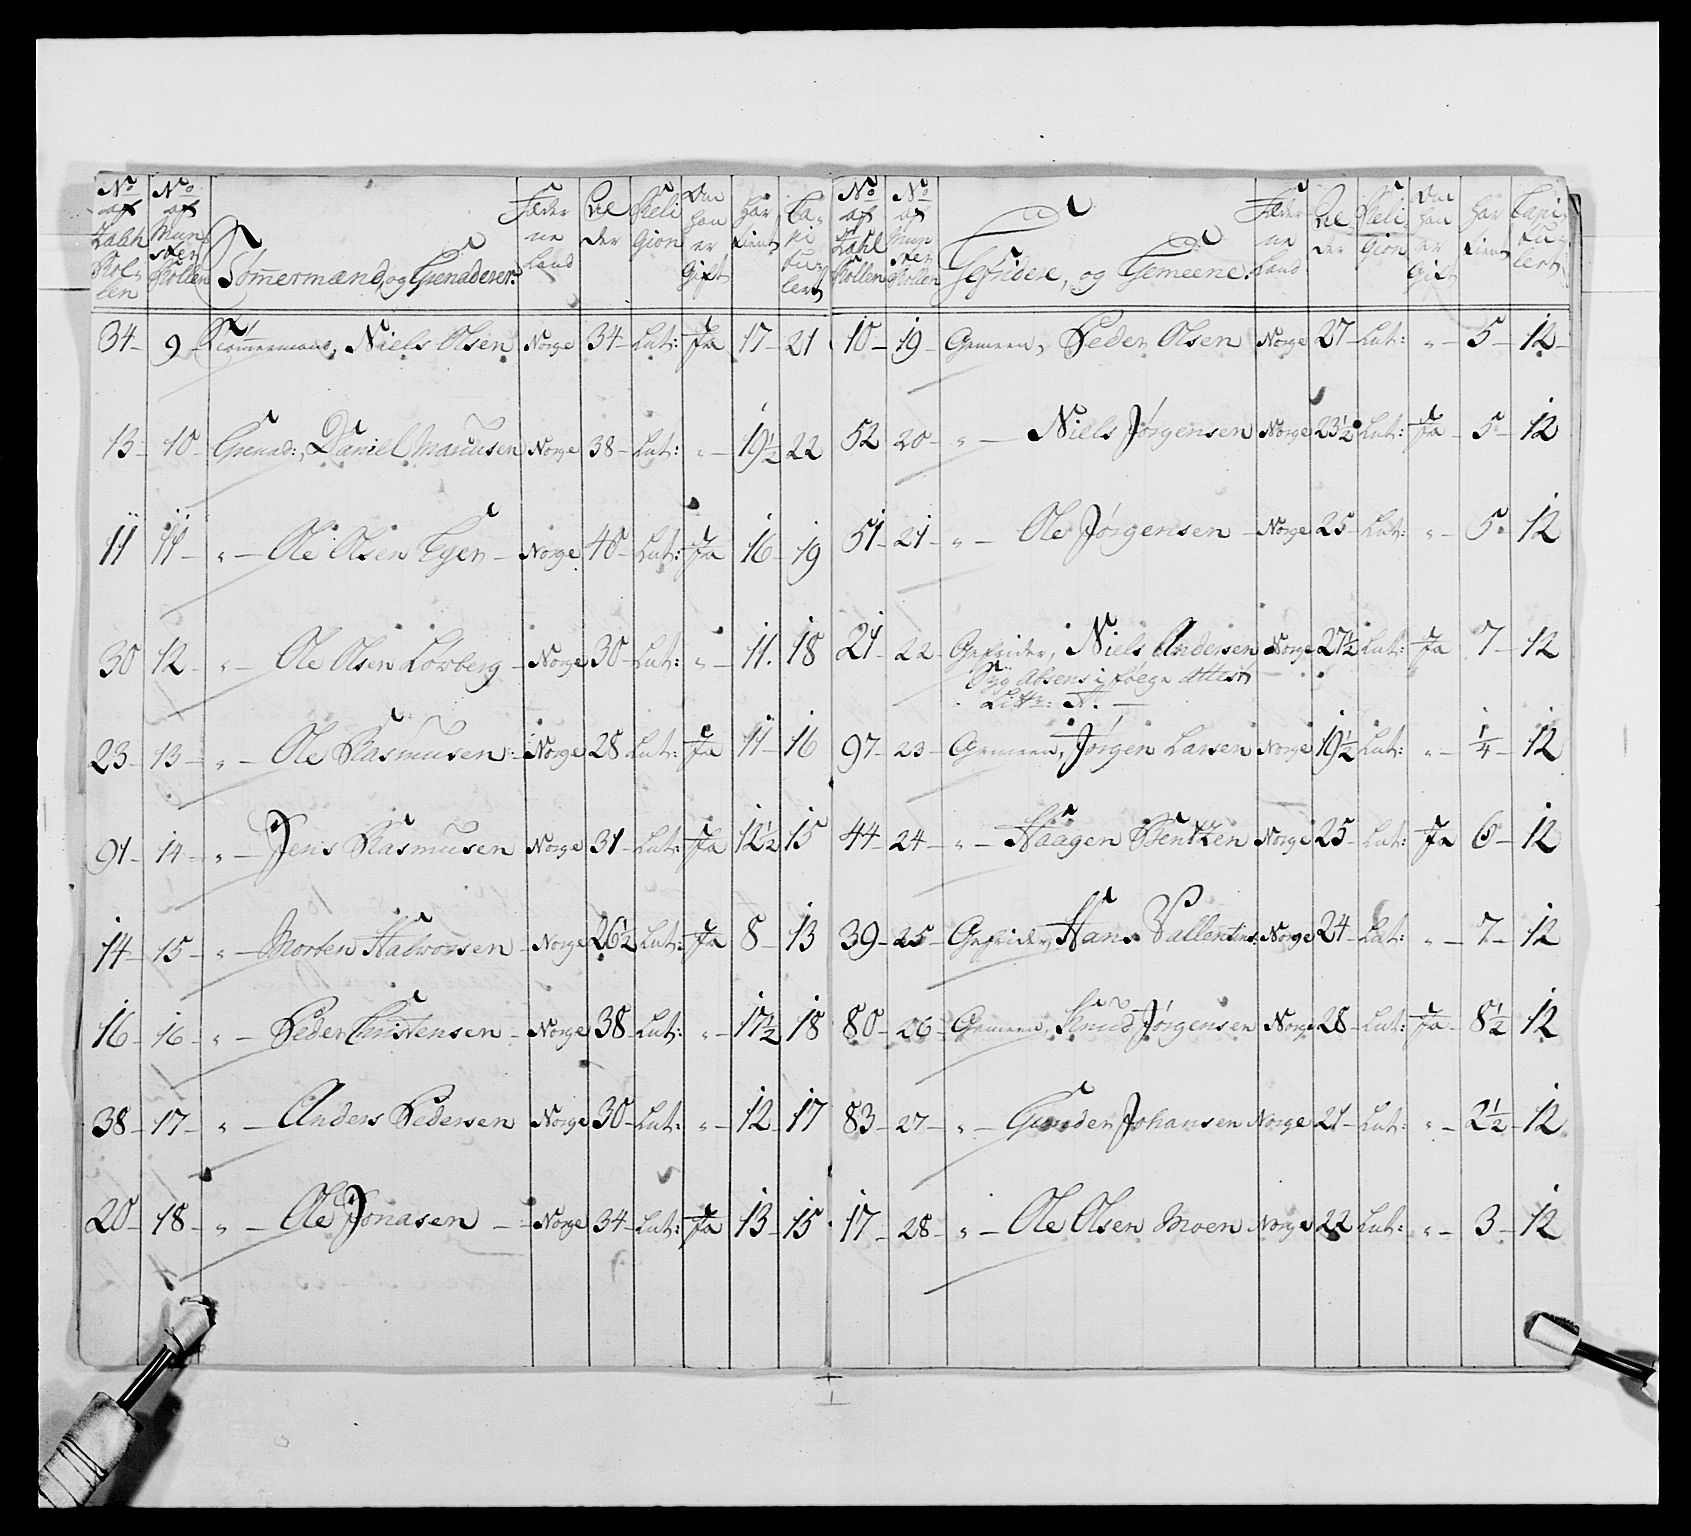 No af Zahl Rollen | No af Munster Rollen | Tømmermænd, og Grenaderer. | Fæderne Land | Alder | Religion | Om han er Gift | Har tient | Capitulert
34 – 9 – Tømmermand, Niels Olsen Norge 34 – Lut: Ja 17 – 21
13 – 10 – Grenad:, Daniel Marcusen Norge 38 – Lut: " – 19½ 22
11 11 – " – Ole Olsen – Norge 40 – Lut: Ja 16 – 19
30 12 – " – Ole Olsen Lövberg – Norge 30 – Lut: " – 11. 18
23 – 13 – " – Ole Rasmusen – Norge 28 Lut: Ja 11 – 16
91 – 14 – " – Jens Rasmusen Norge 31 – Lut: Ja 12½ 15
14 – 15 – " – Morten Halworsen – Norge 26½ Lut: Ja 8 – 13
16 – 16 – " – Peder Christensen – Norge 38 – Lut: " – 17½ 18
38 – 17 – " – Anders Pedersen Norge 30 – Lut: " – 12 – 17
20 – 18 – " – Ole Jonasen – – Norge 34 – Lut: Ja 13 – 15
No af Zahl Rollen | No af Munster Rollen | Gefridere, og Gemeene. | Fæderne Land | Alder | Religion | Om han er Gift | Har tient | Capitulert
10 – 19 – Gemeen, Peder Olsen Norge 27 – Lut: " – 5 – 12 –
52 20 – " – Niels Jörgensen Norge 23½ Lut: Ja – 5 – 12
51 – 21 – " – Ole Jörgensen – Norge 25 – Lut: " – 5 – 12
21 – 22 – Gefrider, Niels Andersen Norge 27½ Lut: Ja 7 – 12
Syg Absens i følge Attest
Litr: A. –
97 – 23 – Gemeen, Jörgen Larsen Norge 19½ Lut: " – ¼ – 12
44 – 24 – " – Haagen Bentzen Norge 25 – Lut: Ja 6 – 12
39 – 25 – Gefrider, Hans Vallentins: Norge 24 – Lut: " – 7 – 12
80 – 26 – Gemeen, Knud Jörgensen Norge 28 – Lut: Ja – 8½ 12
83 – 27 – " – Gunder Johansen Norge 21 – Lut: " – 2½ – 12
17 – 28 – " – Ole Olsen Moen Norge 22 Lut: " – 3 – 12